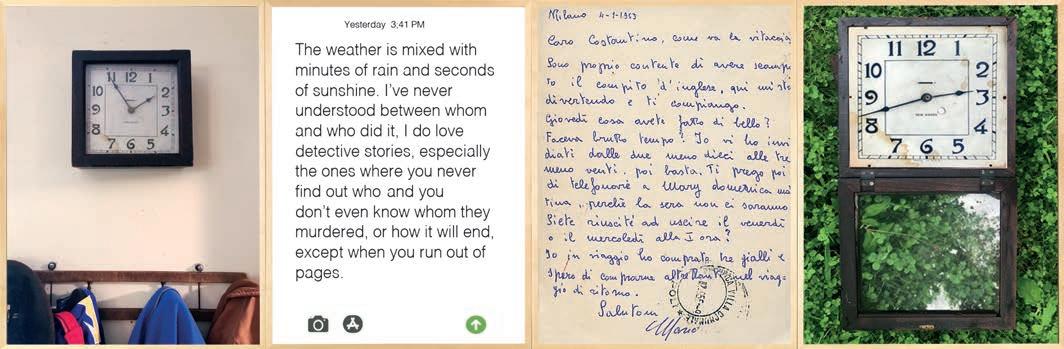 11 12 1
10 2
9 3
8 4
7 6 5
Yesterday 3:41 PM
The weather is mixed with
minutes of rain and seconds
of sunshine. I've never
understood between whom
and who did it, I do love
detective stories, especially
the ones where you never
find out who and you
don't even know whom they
murdered, or how it will end,
except when you run out of
pages.
Milano
Caro Costantino, come va la vitaccia
Sono proprio contento di avere scampa
to il compito d'inglese, qui mi sto
divertendo e ti compiango.
Giovedì cosa avete fatto di bello?
Faceva brutto tempo? Io vi ho invi
diati dalle due meno dieci alle tre
meno venti, poi basta. Ti prego poi
di telefonare a Mary domenica mat
tina, perchè la sera non ci saranno
Siete riusciti ad uscire il venerdì
o il mercoledì alla I ora?
Io in viaggio ho comprato tre gialli e
spero di comprarne altrettanti nel viag-
gio di ritorno.
Salutoni
Mario
11 12 1
10 2
9 3
8 4
7 6 5